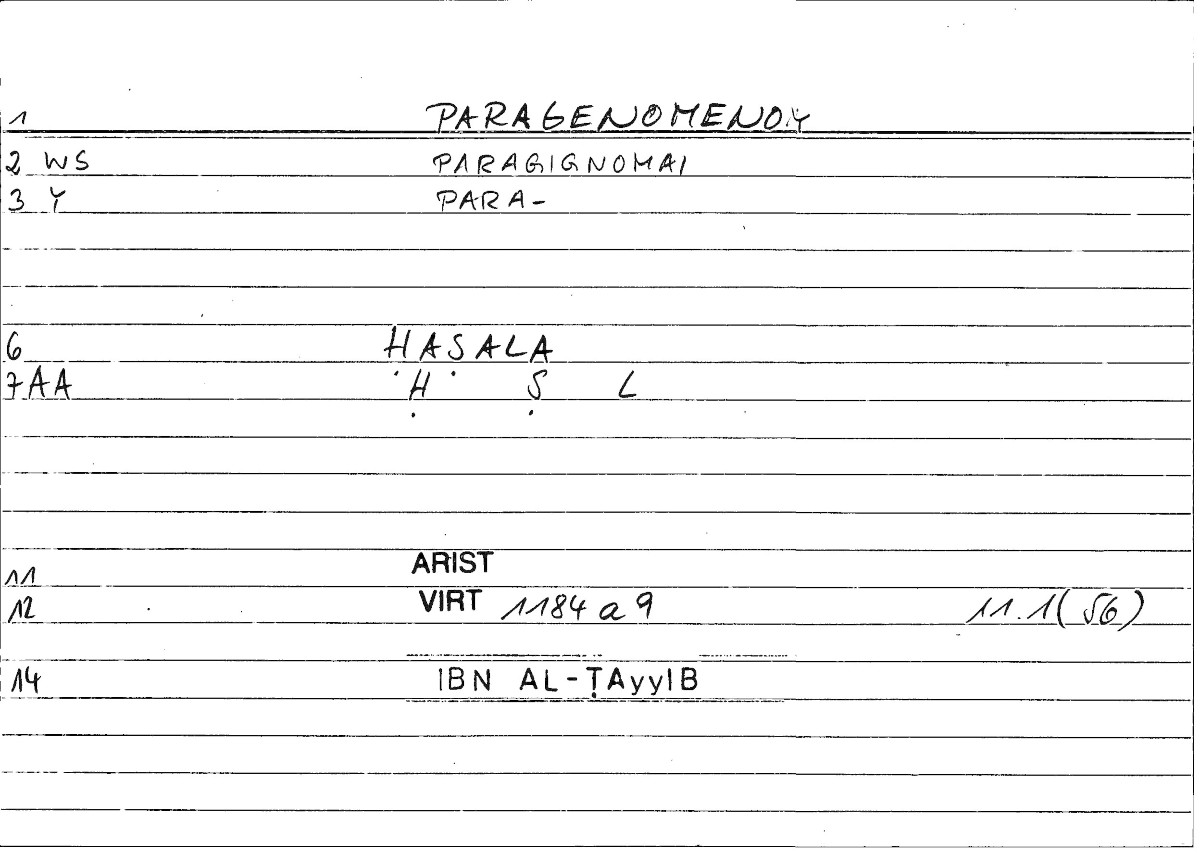 1 PARAGENOMENOY
2 WS PARAGIGNOMAI
3 Y PARA-
6 ḤAṢALA
7 AA Ḥ Ṣ L
11 ARIST
12 VIRT 1184 a 9 11.1(56)
14 IBN AL-ṬAyyIB